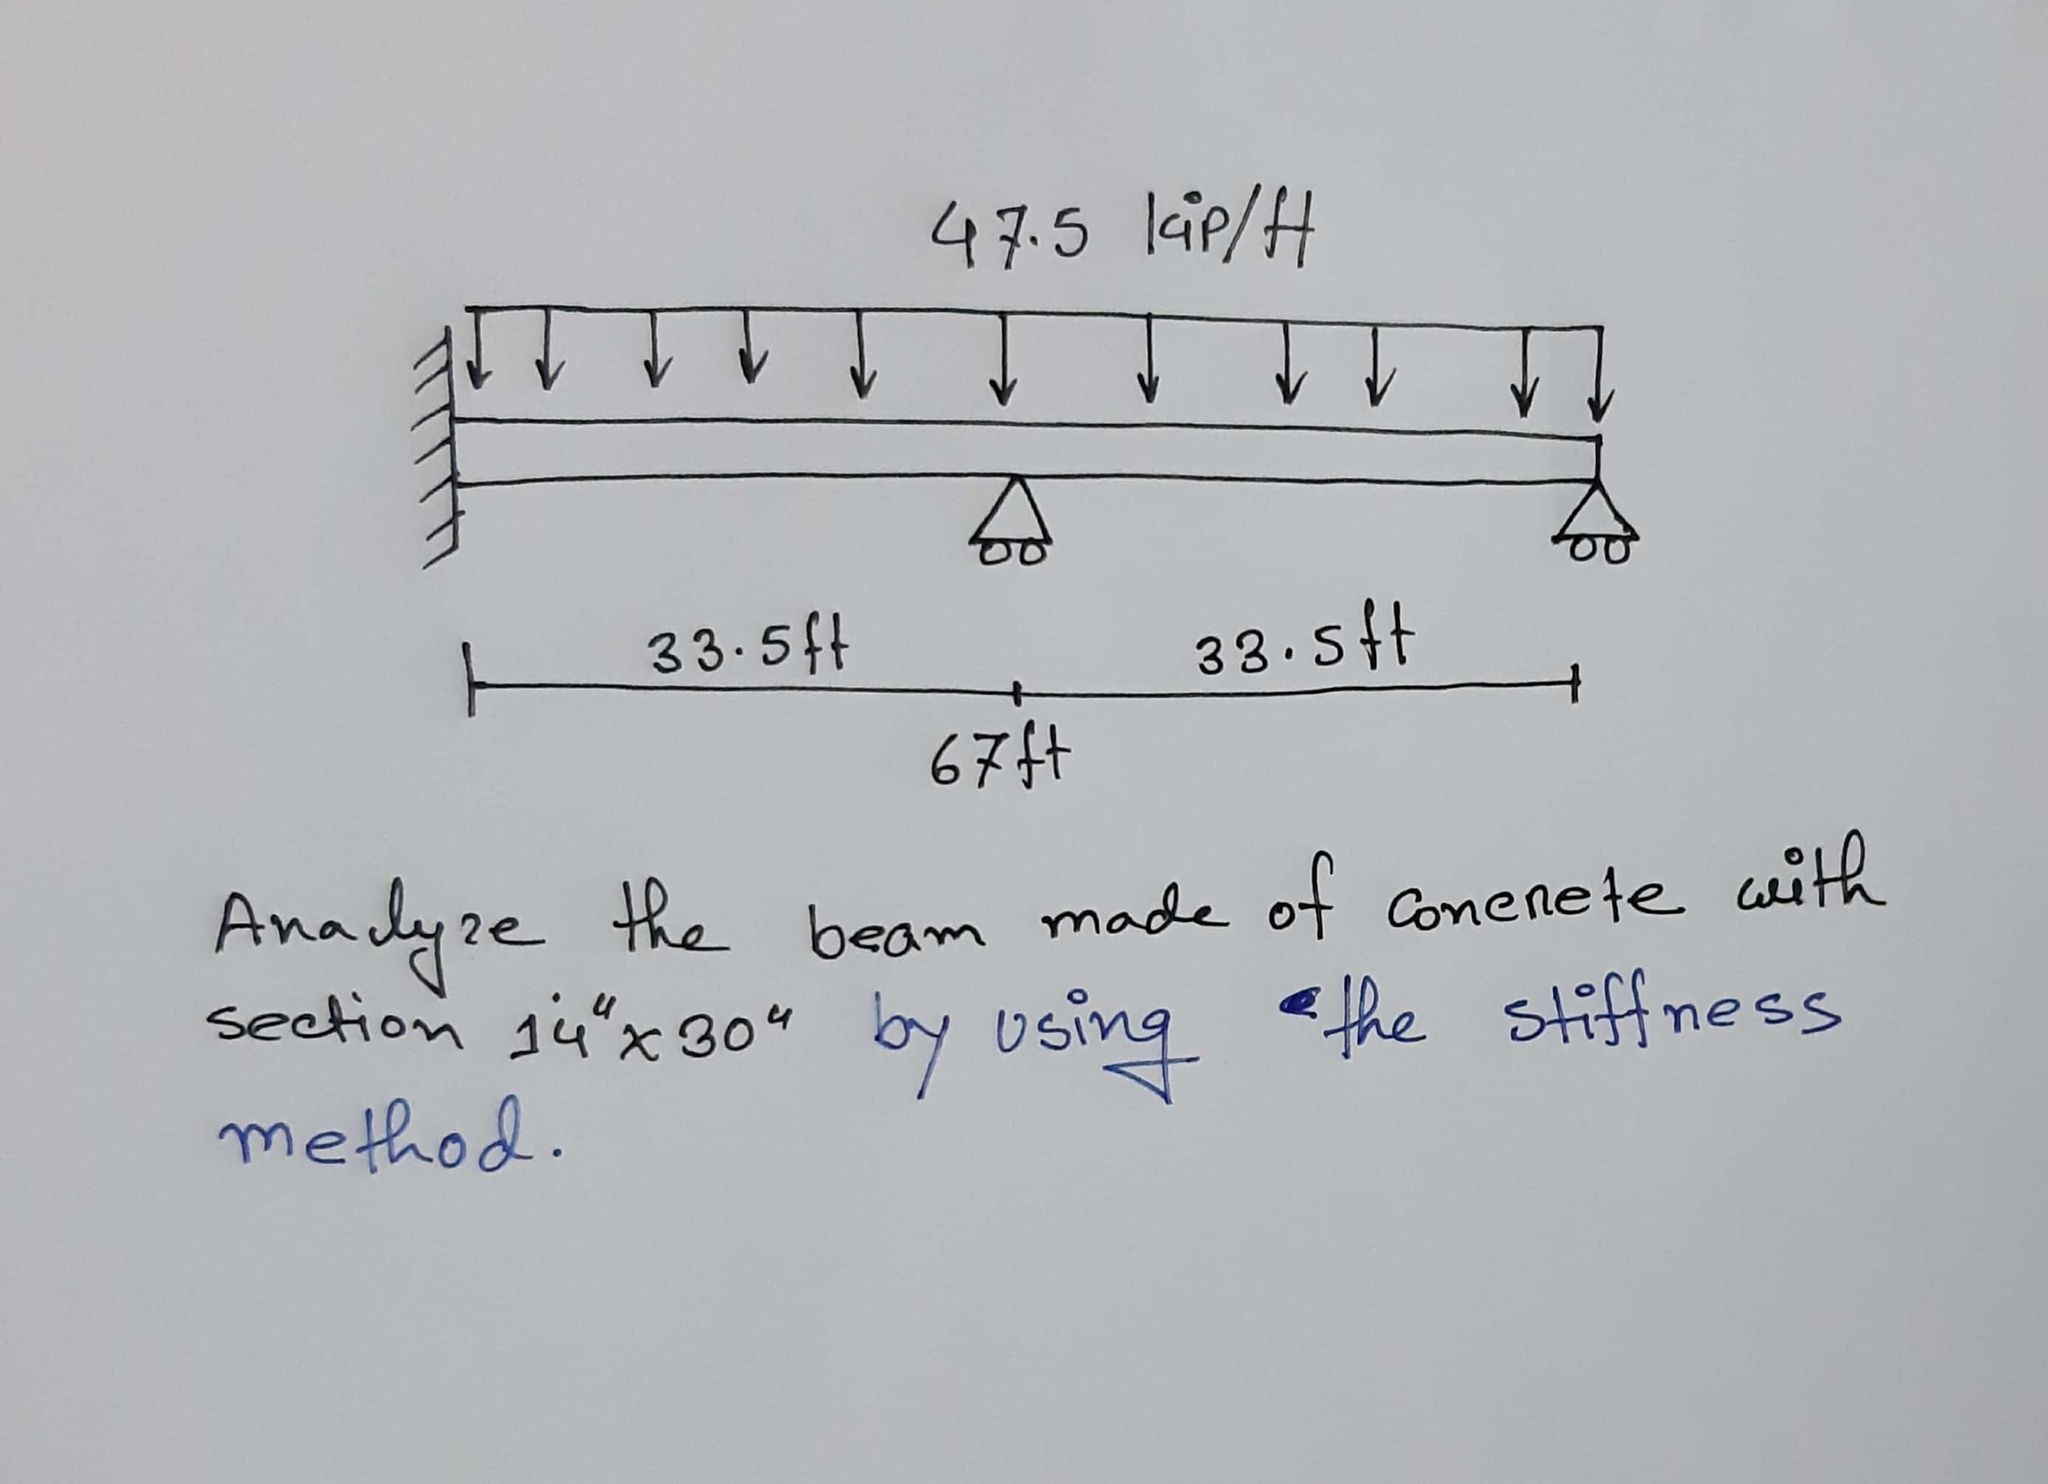 47.5 kip/ft
33.5ft 33.5ft
67ft
Analyze the beam made of concrete with
section 14"x30" by using the stiffness
method.